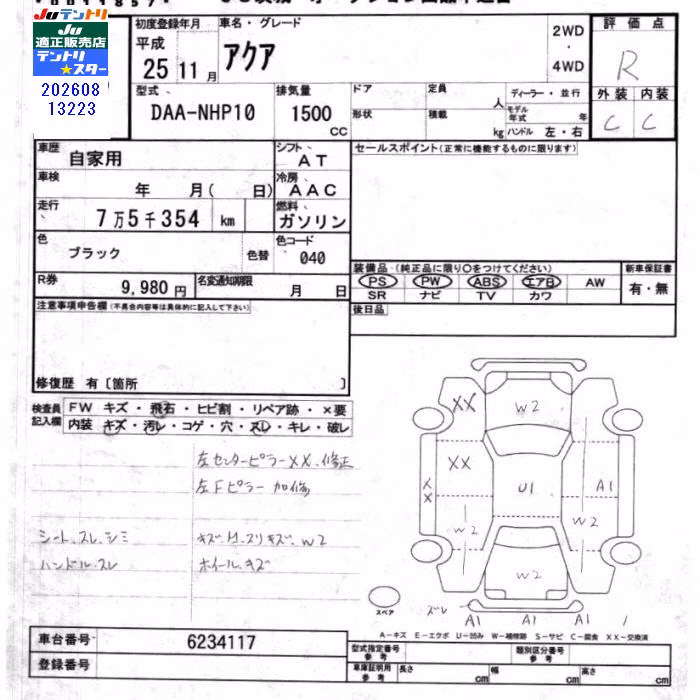 JUテントリ
JU
適正販売店
テントリ
★スター
202608
13223
初度登録年月
平成
25 11 月
車名・グレード
アクア
2WD
・
4WD
評価点
R
外装 内装
C C
型式
DAA-NHP10
排気量
1500
CC
ドア
定員
人
ディーラー・並行
形状
積載
kg
モデル年式
年
ハンドル 左・右
車歴
自家用
シフト
AT
セールスポイント(正常に機能するものに限ります)
車検
年 月( 日)
冷房
AAC
走行
7万5千354 km
燃料
ガソリン
色
ブラック
色替
色コード
040
R券
9,980 円
名変通知期限
月 日
装備品・(純正品に限り○をつけてください)
新車保証書
PS PW ABS エアB AW
SR ナビ TV カワ
有・無
後日品
注意事項申告欄(不具合内容等は具体的に記入して下さい)
修復歴 有〔箇所 〕
検査員
記入欄
FW キズ・飛石・ヒビ割・リペア跡・×要
内装 キズ・汚レ・コゲ・穴・スレ・キレ・破レ
左センターピラーXX、修正
左Fピラー 加修
シート、スレ、シミ
ハンドル、スレ
ホイール、キズ
XX
W2
XX
XX
U1
A1
W2
W2
W2
スペア
ズレ
A1
A1
A1
A-キズ E-エクボ U-凹み W-補修跡 S-サビ C-腐食 XX-交換済
車台番号
6234117
型式指定番号
参考
類別区分番号
参考
登録番号
車庫証明用
参考
長さ cm
幅 cm
高さ cm